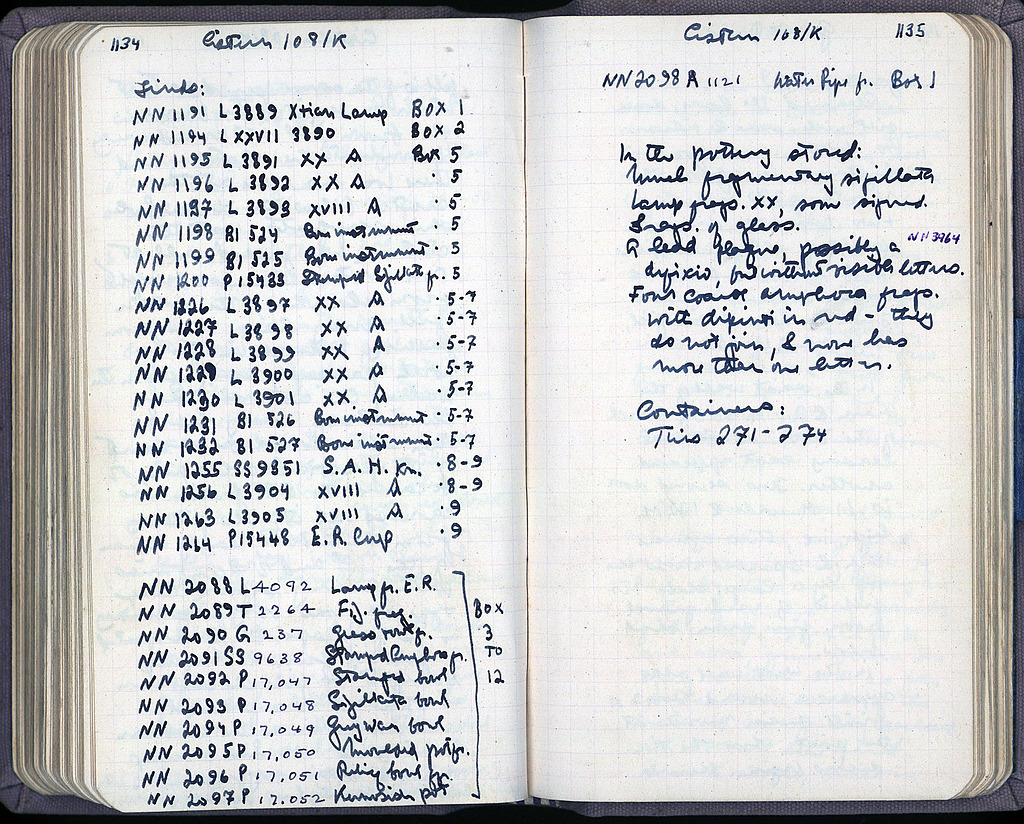 1134 Cistern 108/K
Finds:
NN 1191 L 3889 Xtian Lamp BOX 1
NN 1194 L XXVII 3890 BOX 2
NN 1195 L 3891 XX A Box 5
NN 1196 L 3892 XX A · 5
NN 1197 L 3893 XVIII A 5
NN 1198 BI 524 Bone instrument · 5
NN 1199 BI 525 Bone instrument · 5
NN 1200 P 15433 Stamped Sigillata fr. 5
NN 1226 L 3897 XX A · 5-7
NN 1227 L 3898 XX A · 5-7
NN 1228 L 3899 XX A · 5-7
NN 1229 L 3900 XX A · 5-7
NN 1230 L 3901 XX A
NN 1231 BI 526 Bone instrument · 5-7
NN 1232 BI 527 Bone instrument · 5-7
NN 1255 SS 9351 S.A.H. Kn. · 8-9
NN 1256 L 3904 XVIII A · 8-9
NN 1263 L 3905 XVIII A · 9
NN 1264 P 15448 E.R. Cup · 9
NN 2088 L 4092 Lamp fr. E.R.
NN 2089 T 2264 Fig. frag.
NN 2090 G 237 Glass fr.
NN 2091 SS 9638 Stamped Amphora fr.
NN 2092 P 17,047 Stamped bowl
NN 2093 P 17,048 Sigillata bowl
NN 2094 P 17,049 Gray Ware bowl
NN 2095 P 17,050 Moulded pot fr.
NN 2096 P 17,051 bowl fr.
NN 2097 P 17,052 pot
BOX
3
TO
12
Cistern 108/K 1135
NN 2098 A 1121 Water Pipe fr. Box 1
In the pottery stored:
Much fragmentary sigillata
Lamp frags. XX, some signed.
Frags. of glass.
A lead plaque, possibly a NN 3964
defixio, but without visible letters.
Four coarse amphora frags.
with dipinti in red - they
do not join, & none has
more than one letter.
Containers:
Tins 271-274